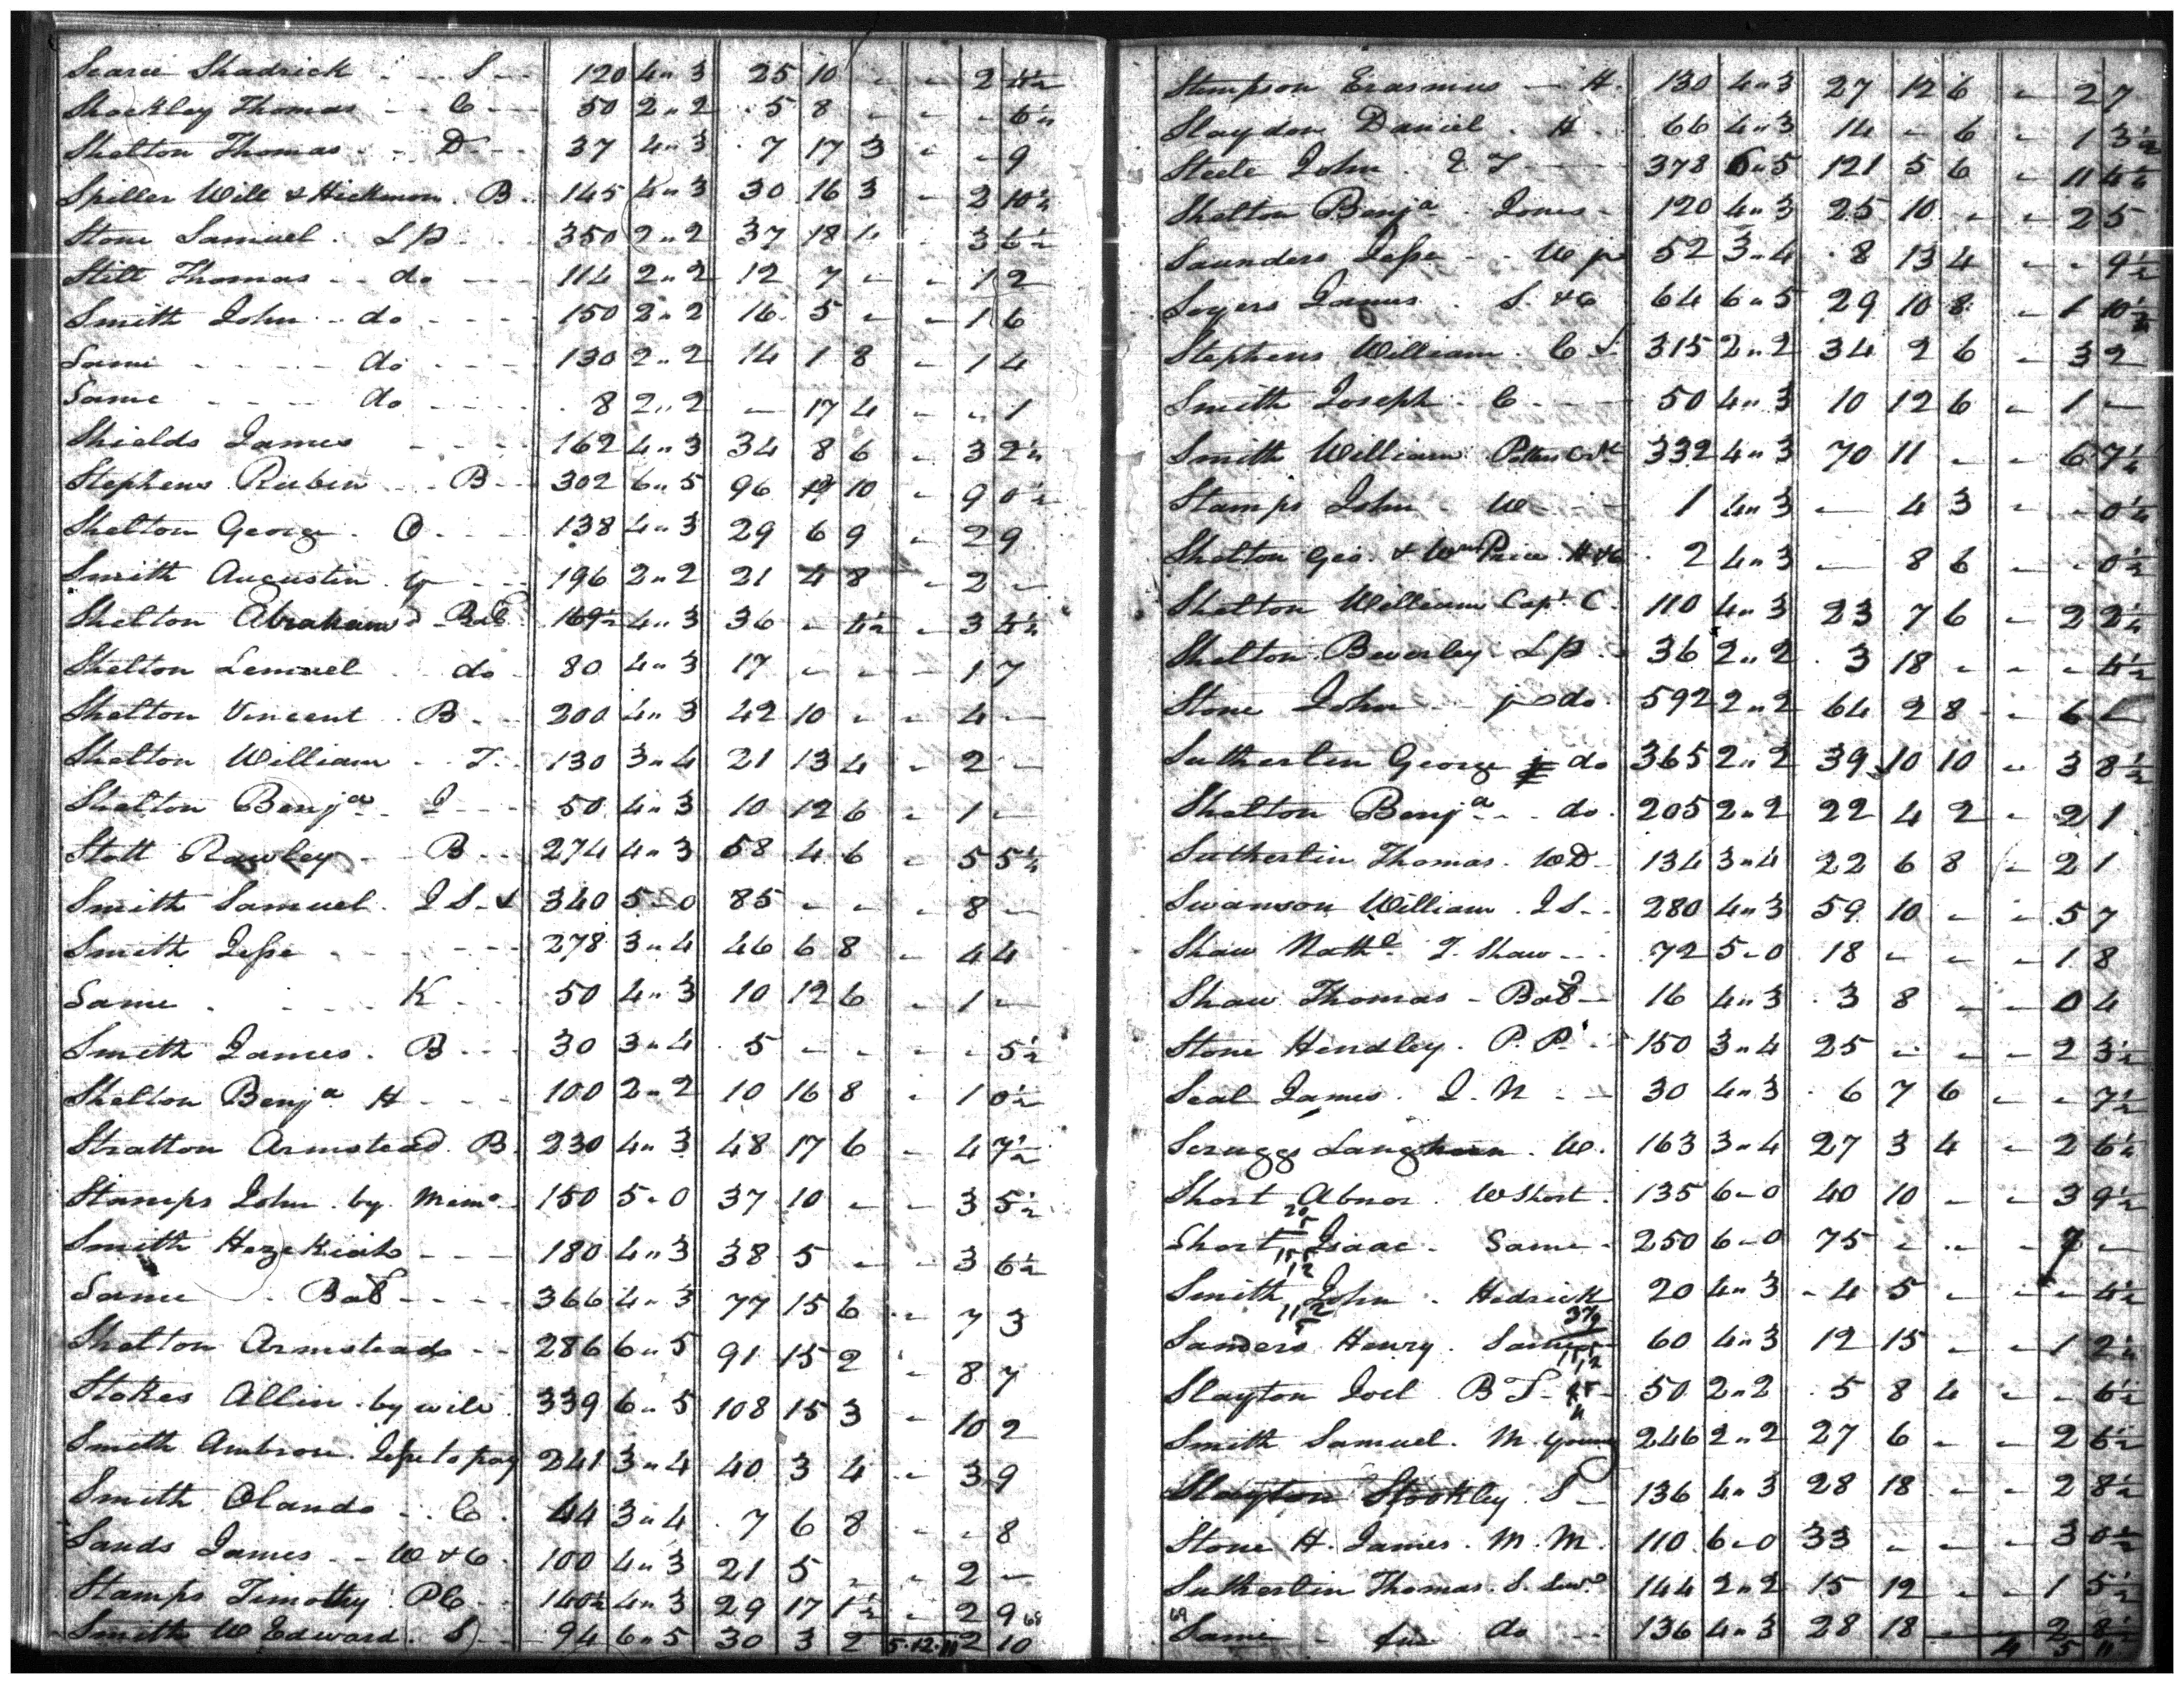 Searce Shadrick S 120 4 " 3 25 10 " " 2 4½
Shockley Thomas C 50 2 " 2 5 8 - - - 6¼
Shelton Thomas D 37 4 " 3 7 17 3 - - 9
Spiller Will & Hickmon B 145 4 " 3 30 16 3 - 2 10¼
Stone Samuel L P 350 2 " 2 37 18 4 - 3 6½
Stilt Thomas do 114 2 " 2 12 7 - - 1 2
Smith John do 150 2 " 2 16 5 - - 1 6
Same do 130 2 " 2 14 1 8 - 1 4
Same do 8 2 " 2 - 17 4 - - 1
Shields James 162 4 " 3 34 8 6 - 3 2¼
Stephens Reubin B 302 6 " 5 96 10 - 9 0½
Shelton George O 138 4 " 3 29 6 9 - 2 9
Smith Augustin G 196 2 " 2 21 4 8 - 2 -
Shelton Abraham B&C 169½ 4 " 3 36 - 4½ - 3 4¼
Shelton Lemuel do 80 4 " 3 17 - - - 1 7
Shelton Vincent B 200 4 " 3 42 10 - - 4 -
Shelton William T 130 3 " 4 21 13 4 - 2 -
Shelton Benjª J 50 4 " 3 10 12 6 - 1 -
Stott Rawley B 274 4 " 3 58 4 6 - 5 5¼
Smith Samuel J S 340 5 - 0 85 - - - 8 -
Smith Jesse 278 3 " 4 46 6 8 - 4 4
Same K 50 4 " 3 10 12 6 - 1 -
Smith James B 30 3 " 4 5 - - - - 5½
Shelton Benjª H 100 2 - 2 10 16 8 - 1 0½
Stratton Armstead B 230 4 " 3 48 17 6 - 4 7½
Stamps John by Memº 150 5 - 0 37 10 - - 3 5½
Smith Hezekiah 180 4 " 3 38 5 - - 3 6½
Same B&C 366 4 " 3 77 15 6 - 7 3
Shelton Armstead 286 6 " 5 91 15 2 - 8 7
Stokes Allin by will 339 6 " 5 108 15 3 - 10 2
Smith Ambrose Jesse to pay 241 3 " 4 40 3 4 - 3 9
Smith Olando C 44 3 " 4 7 6 8 - - 8
Sands James W & C 100 4 " 3 21 5 - - 2 -
Stamps Timothy P C 140½ 4 " 3 29 17 1½ - 2 9
68
Smith W Edward S 94 6 " 5 30 3 2 5.12.11 2 10
Stimpson Erasmus H 130 4 " 3 27 12 6 - 2 7
Slaydon Daniel H 66 4 " 3 14 - 6 - 1 3½
Steele John J T 378 6 " 5 121 5 6 - 11 4¼
Shelton Benjª Jones 120 4 " 3 25 10 - - 2 5
Saunders Jesse W 52 3 " 4 8 13 4 - - 9½
Soyers James S & C 64 6 " 5 29 10 8 - 1 10½
Stephens William C S 315 2 " 2 34 2 6 - 3 2
Smith Joseph C 50 4 " 3 10 12 6 - 1 -
Smith William Potters Crk 332 4 " 3 70 11 - - 6 7¼
Stamps John W 1 4 " 3 - 4 3 - - 0¼
Shelton Geo. & Wm Price H&C 2 4 " 3 - 8 6 - - 0½
Shelton William Capt. C 110 4 " 3 23 7 6 - 2 2¼
Shelton Beverley L P 36 2 " 2 3 18 - - - 4½
Stone John do 592 2 " 2 64 2 8 - 6
Sutherlin George do 365 2 " 2 39 10 10 - 3 8½
Shelton Benjª do 205 2 " 2 22 4 2 - 2 1
Sutherlin Thomas W D 134 3 " 4 22 6 8 - 2 1
Swanson William J S 280 4 " 3 59 10 - - 5 7
Shaw Nathl T. Shaw 72 5 - 0 18 - - - 1 8
Shaw Thomas B&C 16 4 " 3 3 8 - - 0 4
Stone Hendley P. P. 150 3 " 4 25 - - - 2 3½
Seal James J. N 30 4 " 3 6 7 6 - - 7½
Scruggs Langhorn W. 163 3 " 4 27 3 4 - 2 6½
Short Abner W Short 135 6 - 0 40 10 - - 3 9½
Short Isaac Same 250 6 - 0 75 - - - 7 -
Smith John Hedrick 20 4 " 3 4 5 - - - 4½
Sanders Henry Same 60 4 " 3 12 15 - - 1 2¼
Slayton Joel B T 50 2 " 2 5 8 4 - - 6½
Smith Samuel M. Young 246 2 " 2 27 6 - - 2 6½
Slayton Stokley S 136 4 " 3 28 18 - - 2 8½
Stone H. James M. M. 110 6 - 0 33 - - - 3 0½
Sutherlin Thomas S. 144 2 " 2 15 12 - - 1 5½
69
Same do 136 4 " 3 28 18 - 2 8½
4 5 11